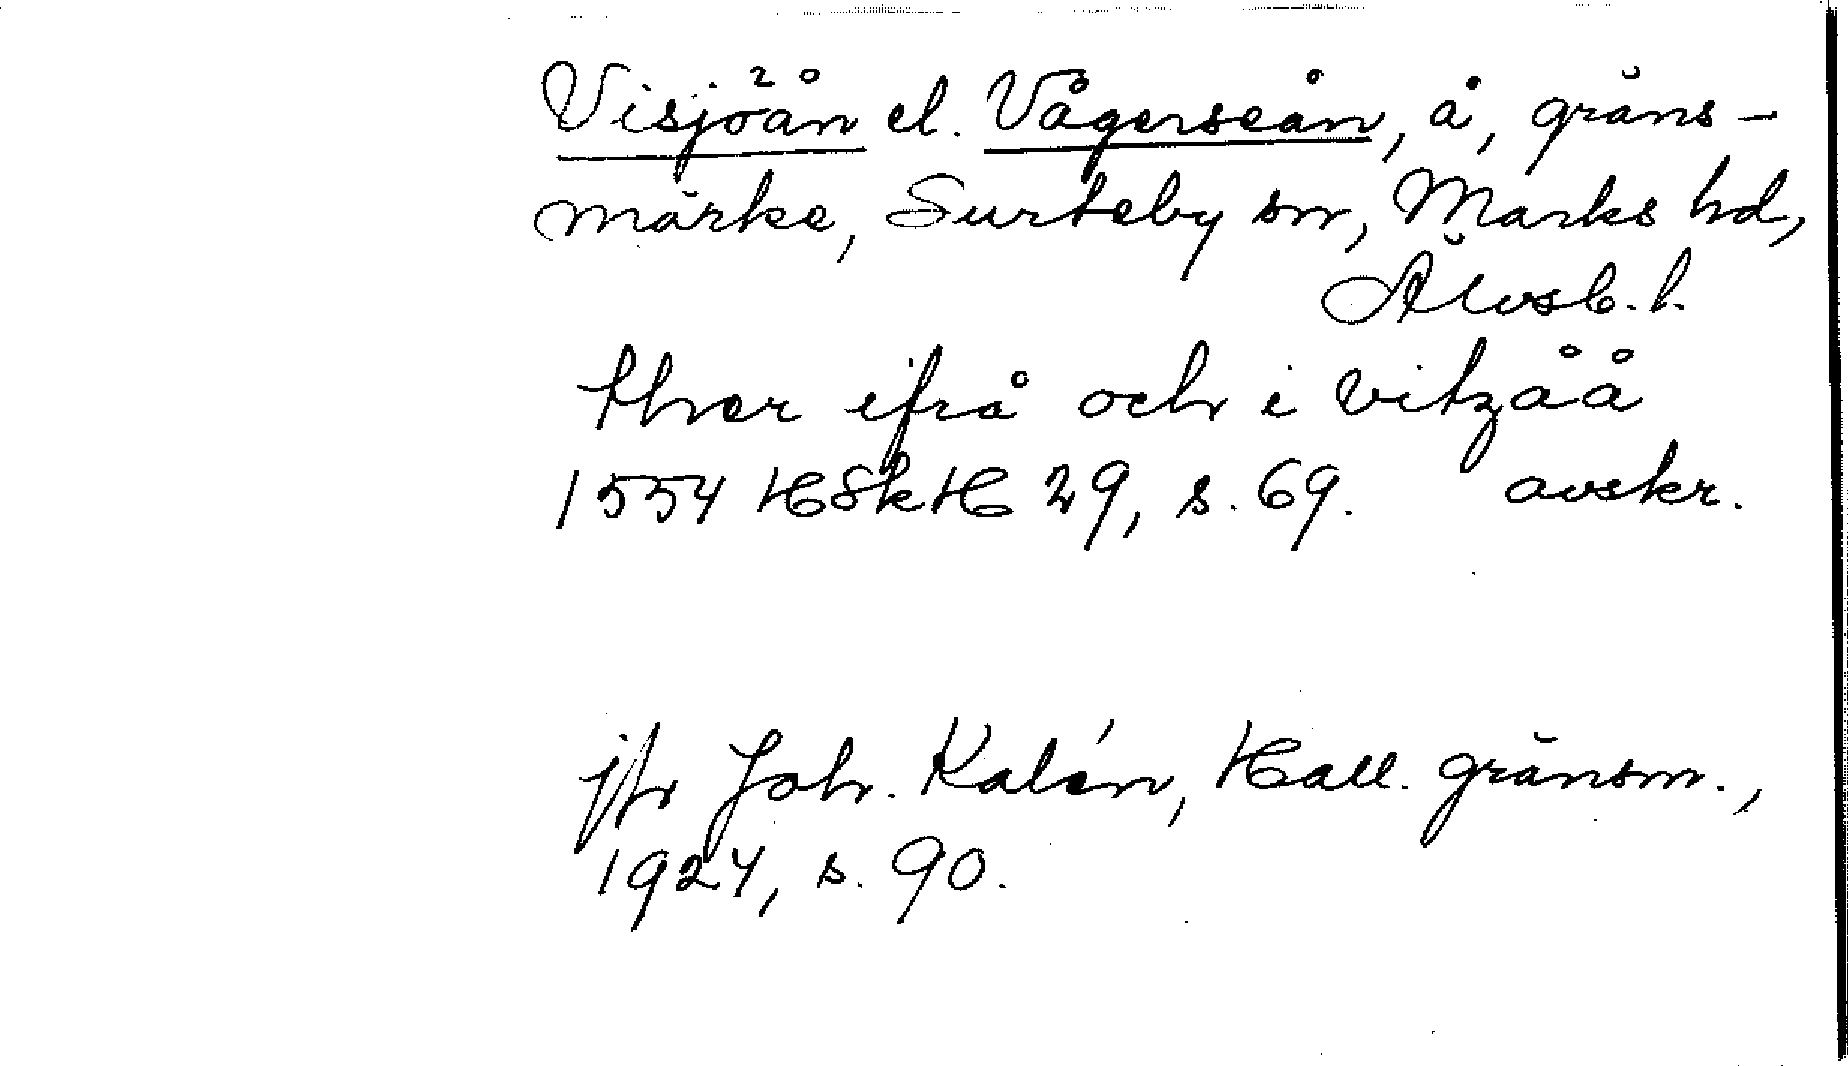 Visjöån el. Vågerseån, å, gräns-
märke, Surteby sn, Marks hd,
Älvsb. l.
thver ifrå och i Vitzåå
1554 HSkH 29, s. 69. avskr.
jfr Joh. Kalén, Hall. gränsm.,
1924, s. 90.